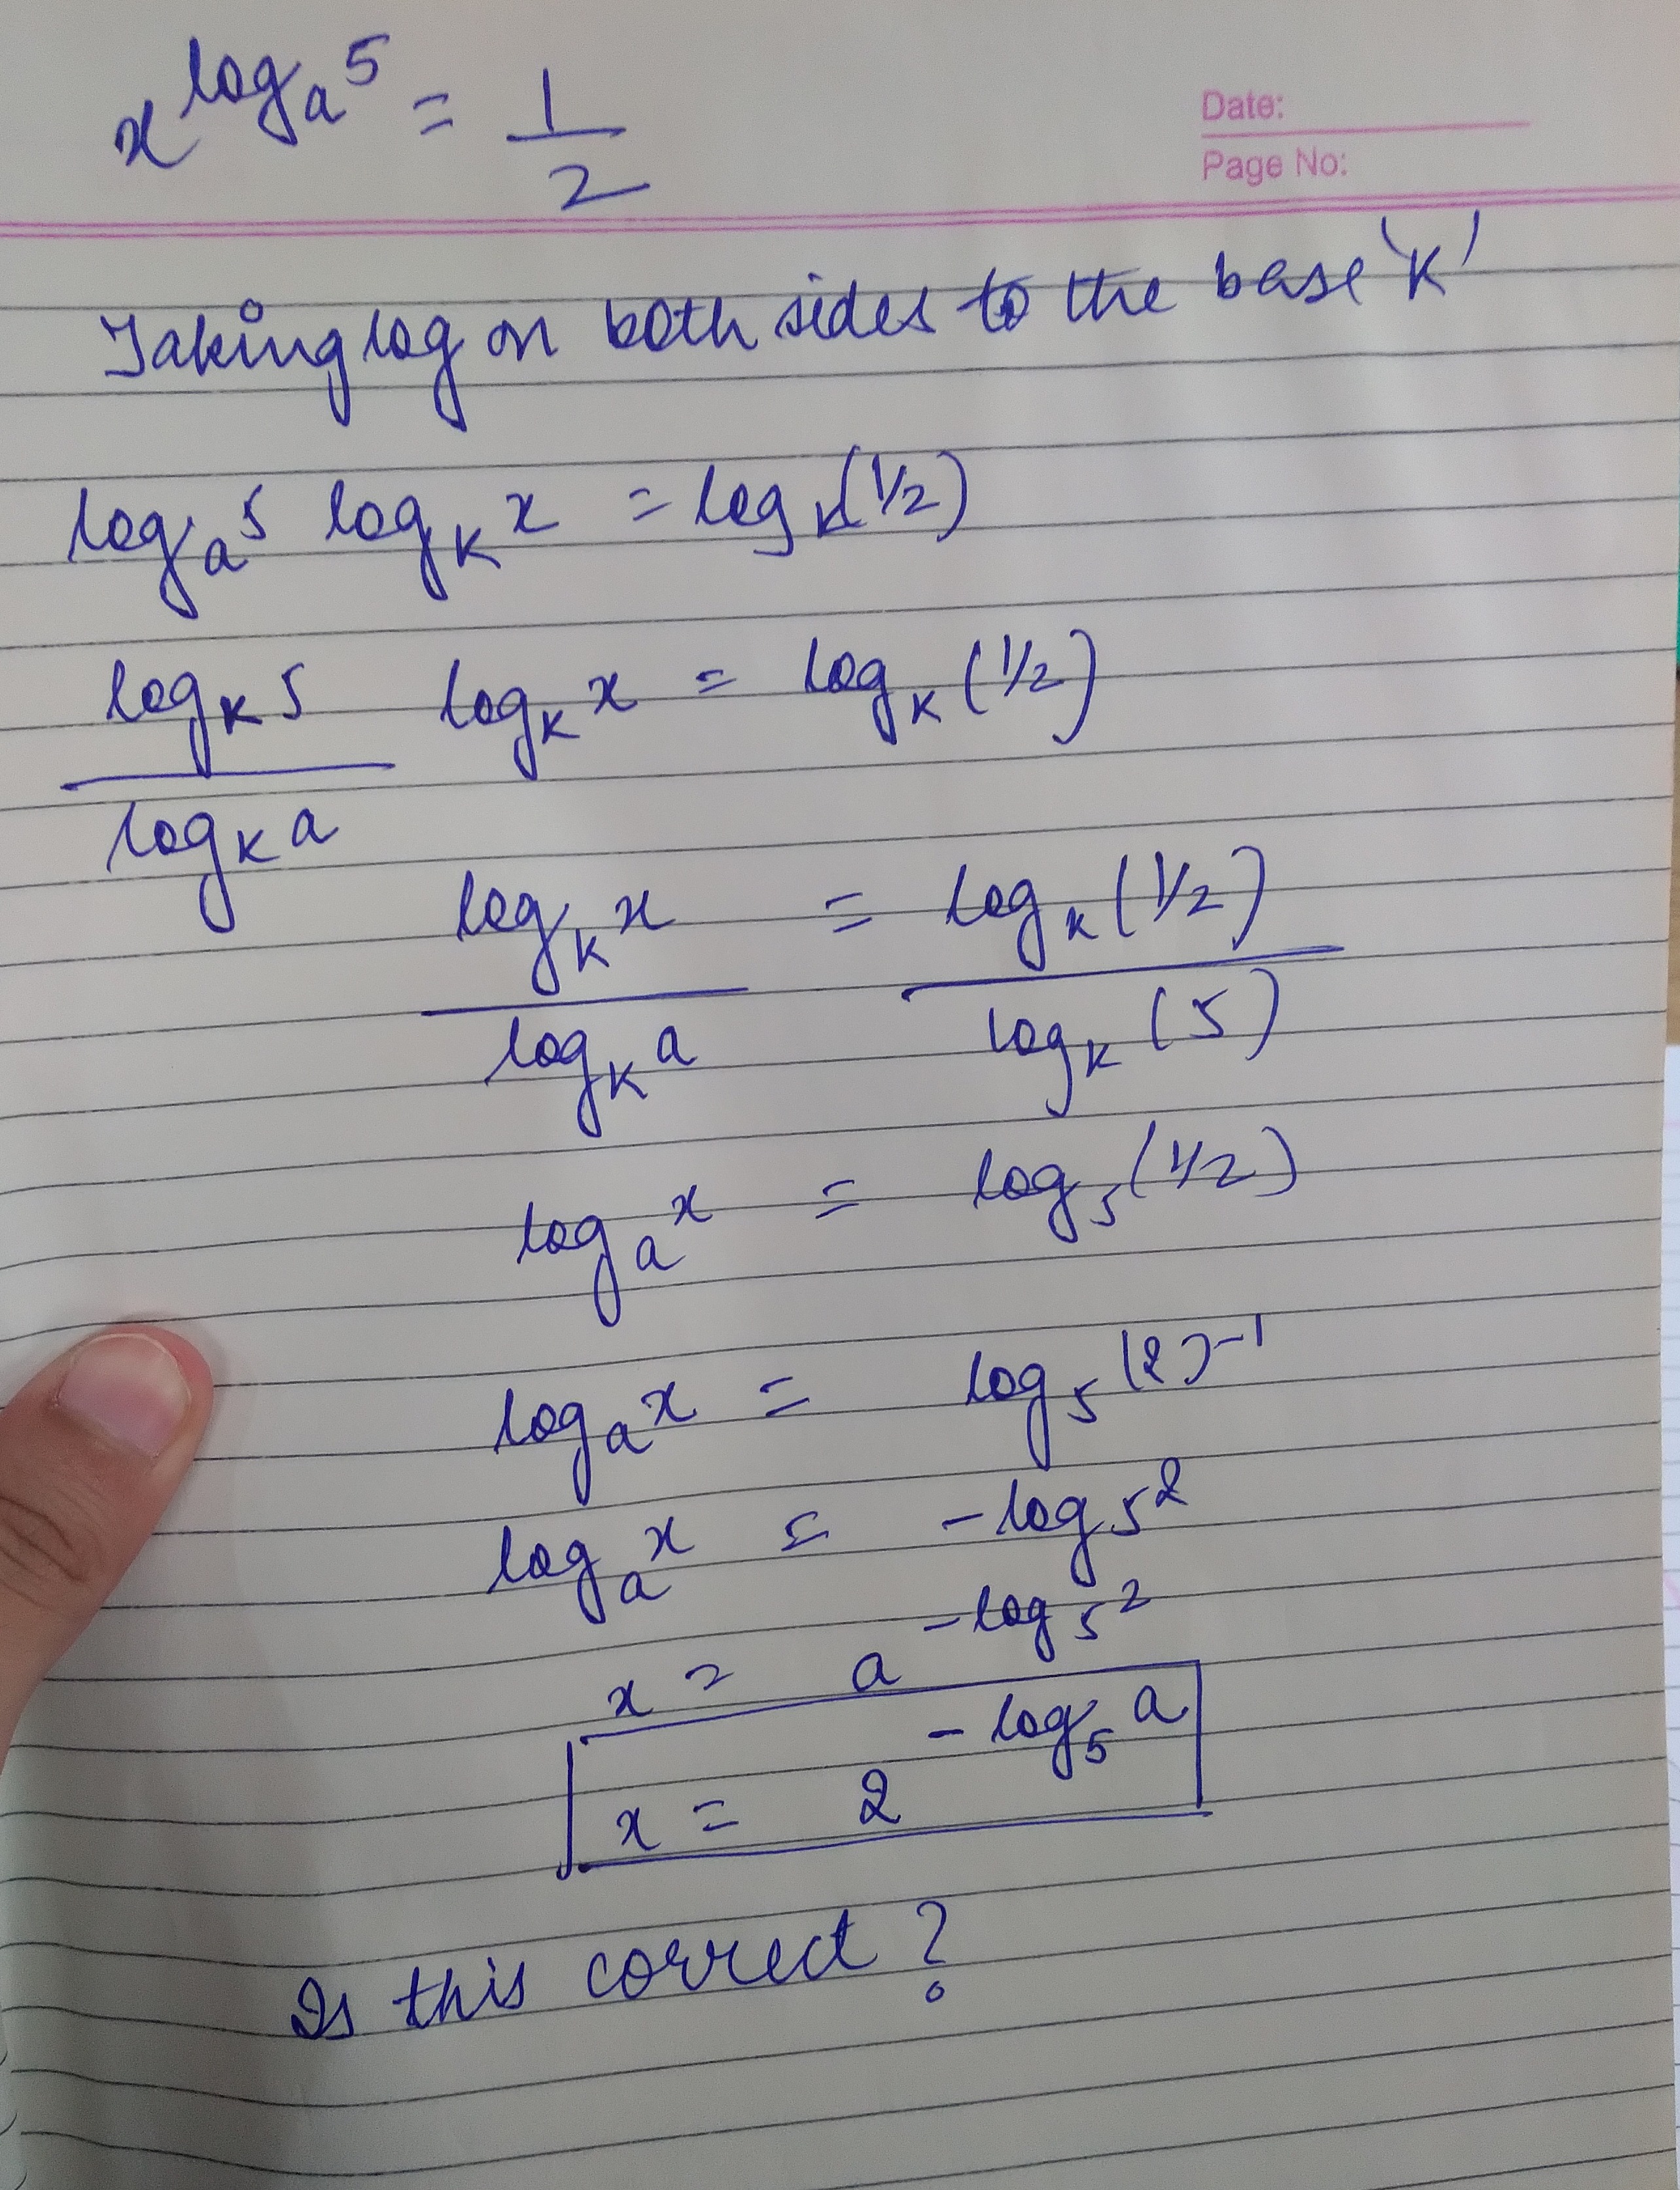 x^(log_a 5) = 1/2
Date:
Page No:
Taking log on both sides to the base 'K'
log_a 5 log_K x = log_K (1/2)
log_K 5 / log_K a log_K x = log_K (1/2)
log_K x / log_K a = log_K (1/2) / log_K (5)
log_a x = log_5 (1/2)
log_a x = log_5 (2)^-1
log_a x = - log_5 2
x = a^(- log_5 2)
x = 2^(- log_5 a)
Is this correct ?